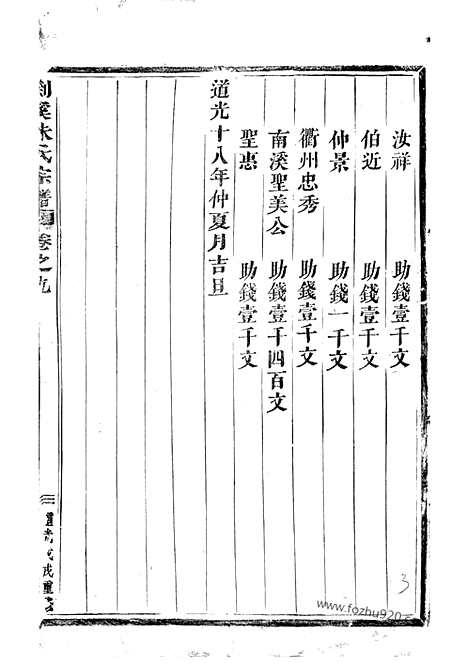 汝祥　助錢壹千文
伯近　助錢壹千文
仲景　助錢一千文
衢州忠秀　助錢壹千文
南溪聖美公　助錢壹千四百文
聖惠　助錢壹千文
道光十八年仲夏月吉旦
剡溪朱氏宗譜 卷之九
三
戊戌重
3
www.fozhu920.com